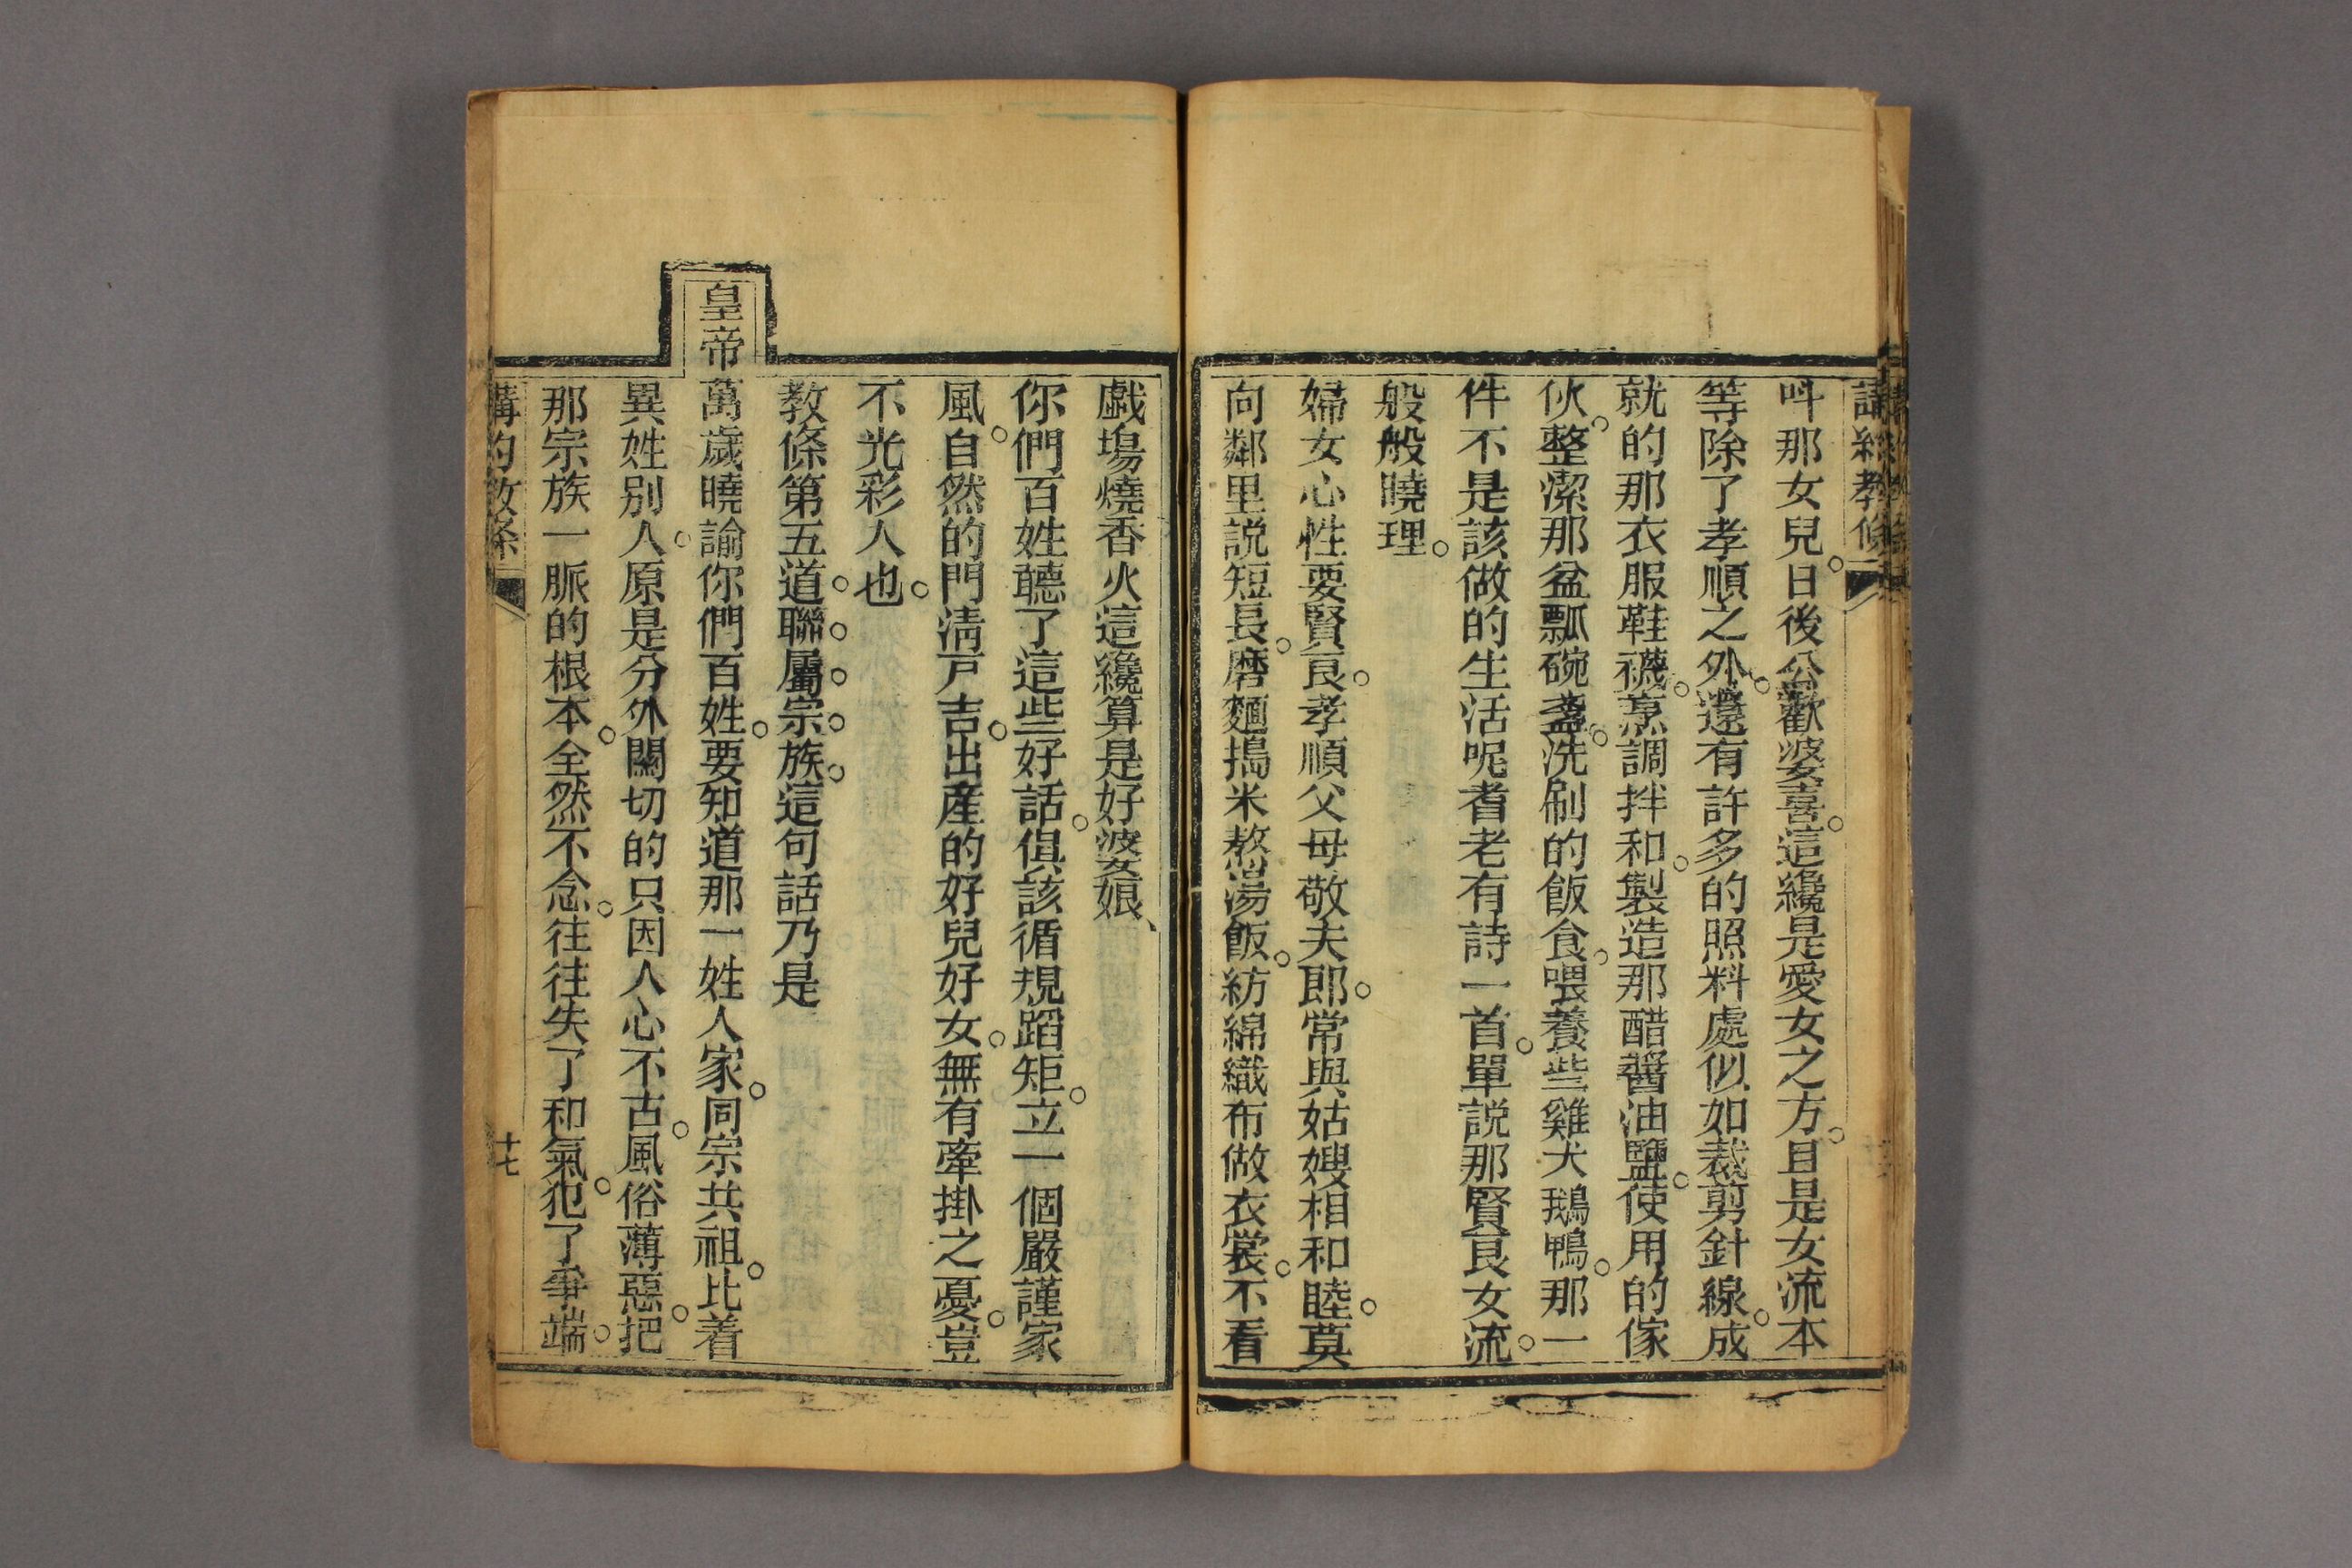 講約教條
呌那女兒。日後公歡婆喜。這纔是愛女之方。且是女流本
等除了孝順之外。還有許多的照料處似如裁剪針線。成
就的那衣服鞋襪。烹調拌和。製造那醋醬油鹽。使用的傢
伙。整潔那盆瓢碗盞。洗刷的飯食。喂養些雞犬鵝鴨。那一
件不是該做的生活呢耆老有詩一首。單説那賢良女流。
般般曉理。
婦女心性要賢良。孝順父母敬夫郎。常與姑嫂相和睦。莫
向鄰里説短長。磨麵搗米熬湯飯。紡綿織布做衣裳。不看
戯塲燒香火這纔算是好婆娘、
你們百姓聽了這些好話。俱該循規蹈矩。立一個嚴謹家
風。自然的門淸戸吉。出產的好兒好女。無有牽掛之憂。豈
不光彩人也。
教條第五道。聯。屬。宗。族。這句話乃是
皇帝萬歲曉諭你們百姓。要知道那一姓人家。同宗共祖。比着
異姓別人。原是分外關切的只因人心不古。風俗薄惡。把
那宗族一脈的根本。全然不念。往往失了和氣。犯了爭端。
講約教條
十七